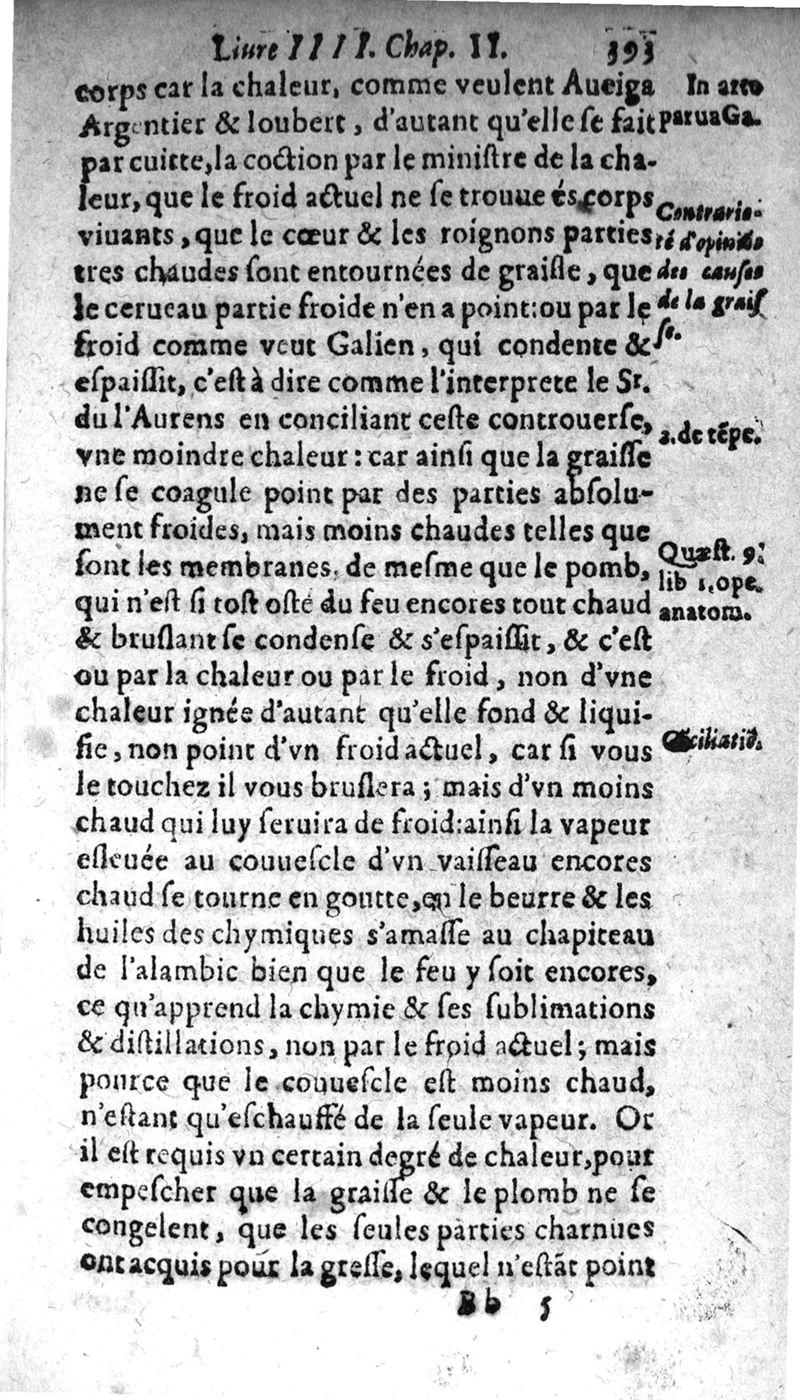 Liure IIII. Chap. II. 393
corps car la chaleur, comme veulent Aueiga
Argentier & Ioubert, d'autant qu'elle se fait
par cuitte, la coction par le ministre de la cha-
leur, que le froid actuel ne se trouue és corps
viuants, que le cœur & les roignons parties
tres chaudes sont entournées de graisse, que
le cerueau partie froide n'en a point: ou par le
froid comme veut Galien, qui condente &
espaissit, c'est à dire comme l'interprete le Sr.
du l'Aurens en conciliant ceste controuerse,
vne moindre chaleur: car ainsi que la graisse
ne se coagule point par des parties absolu-
ment froides, mais moins chaudes telles que
sont les membranes. de mesme que le pomb,
qui n'est si tost osté du feu encores tout chaud
& bruslant se condense & s'espaissit, & c'est
ou par la chaleur ou par le froid, non d'vne
chaleur ignée d'autant qu'elle fond & liqui-
fie, non point d'vn froid actuel, car si vous
le touchez il vous bruslera; mais d'vn moins
chaud qui luy seruira de froid: ainsi la vapeur
esleuée au couuescle d'vn vaisseau encores
chaud se tourne en goutte, en le beurre & les
huiles des chymiques s'amasse au chapiteau
de l'alambic bien que le feu y soit encores,
ce qu'apprend la chymie & ses sublimations
& distillations, non par le froid actuel; mais
pource que le couuescle est moins chaud,
n'estant qu'eschauffé de la seule vapeur. Or
il est requis vn certain degré de chaleur, pour
empescher que la graisse & le plomb ne se
congelent, que les seules parties charnues
ont acquis pour la gresse, lequel n'estāt point
Bb 5
In arte
parua Ga.
Contrarie-
té d'opiniōs
des causes
de la grais
se.
2. de tēpe.
Quæst. 9.
lib 1. ope.
anatom.
Cōciliatiō.